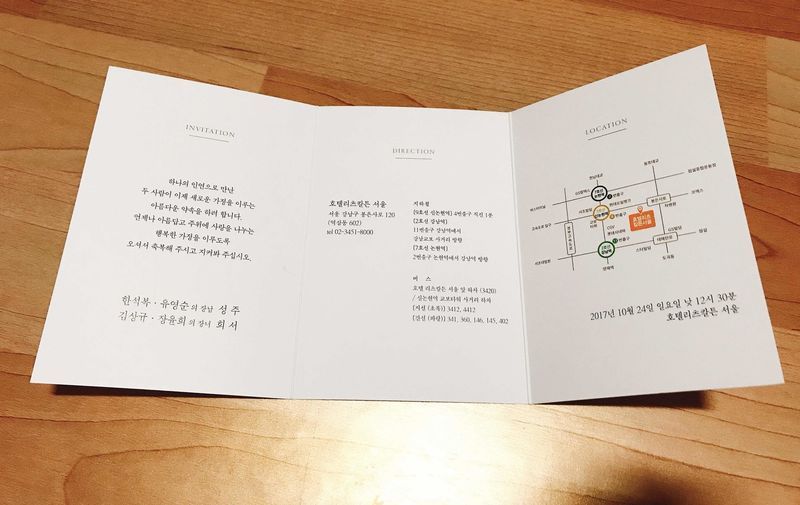 INVITATION
하나의 인연으로 만난
두 사람이 이제 새로운 가정을 이루는
아름다운 약속을 하려 합니다.
언제나 아름답고 주위에 사랑을 나누는
행복한 가정을 이루도록
오셔서 축복해 주시고 지켜봐 주십시오.
한석복 · 유영순 의 장남 성주
김삼규 · 장윤희 의 장녀 희서
DIRECTION
호텔리츠칼튼 서울
서울 강남구 봉은사로 120
(역삼동 602)
tel 02-3451-8000
지하철
[9호선 신논현역] 4번출구 직진 1분
[2호선 강남역]
11번출구 강남역에서
강남교보 사거리 방향
[7호선 논현역]
2번출구 논현역에서 강남역 방향
버 스
호텔 리츠칼튼 서울 앞 하차 (3420)
/ 신논현역 교보타워 사거리 하차
[지선 (초록)] 3412, 4412
[간선 (파랑)] 341, 360, 146, 145, 402
LOCATION
한남대교
동호대교
7호선
논현역
2번출구
4번출구
교보
타워
CGV
롯데시네마
호텔리츠
칼튼서울
차병원
2호선
강남역
11번출구
스타빌딩
양재역
도곡동
잠실
2017년 10월 24일 일요일 낮 12시 30분
호텔리츠칼튼 서울